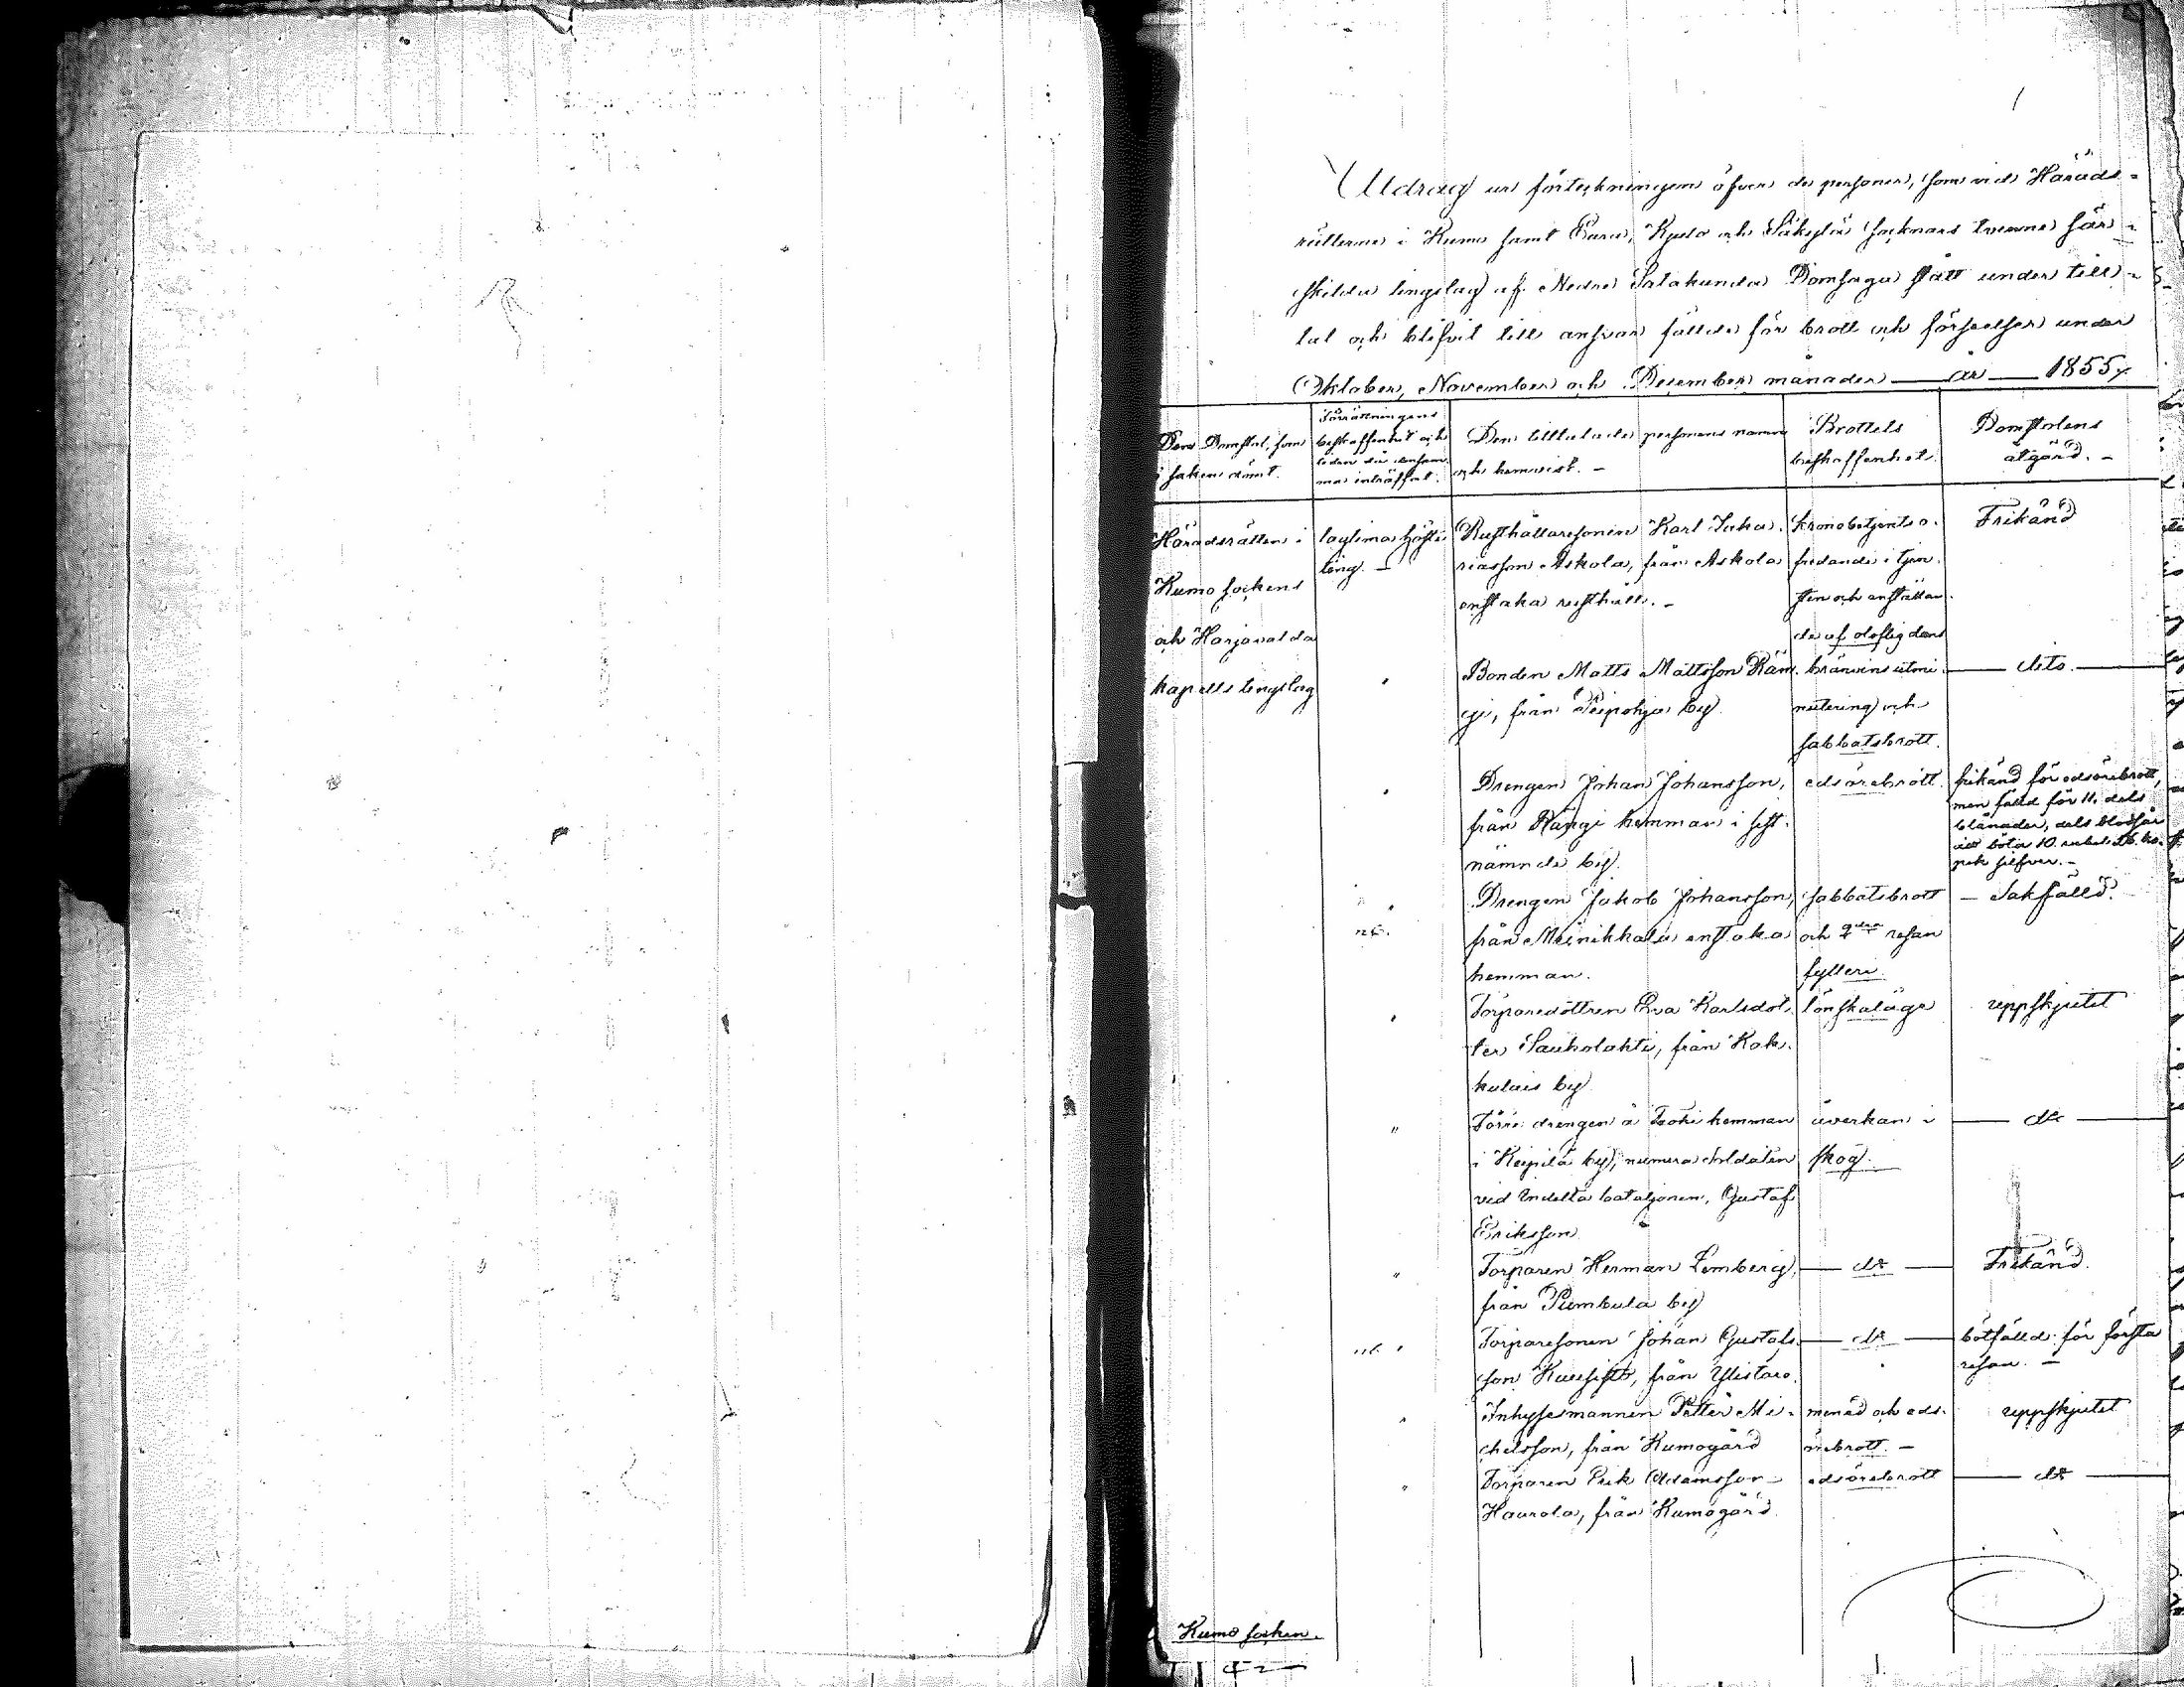 Utdrag ur förteckningen öfver de personer, som vid Härads-
rätterne i Kumo samt Eura, Kjulo och Säkylä socknars tvenne sär-
skilda tingslag af Nedre Satakunda Domsaga stått under till-
tal och blifvit till ansvar fällde för brott och förseelser under
Oktober, November och December månader år 1855.
Den Domstol, som
i saken dömt.
Förrättningens
beskaffenhet och
tiden då densam-
ma inträffat.
Den tilltalade personens namn
och hemvist. -
Brottets
beskaffenhet.
Domstolens
åtgärd. -
Häradsrätten i
Kumo sockens
och Harjavalda
kapells tingslag
lagtima höste
ting. -
Rusthållaresonen Karl Zaka-
riasson Askola, från Askola
enstaka rusthåll. -
kronobetjents o-
fredande i tjen-
sten och anställan-
de af oloflig dans
Frikänd
Bonden Matts Mattsson Rän-
gi, från Peipohja by
bränvins utmi-
nutering och
sabbatsbrott.
dito.
Drengen Johan Johansson,
från Rängi hemman i sist-
nämnde by.
edsörebrott
frikänd för edsörebrott,
men fälld för 11. dels
blånader, dels blodsår
att böta 10. rubel 26. ko-
pek silfver. -
Drengen Jakob Johansson,
från Meinikkala enstaka
hemman.
sabbatsbrott
och resan
fylleri
- Sakfälld.
Torparedottren Eva Karlsdot-
ter Sauholahti, från Kak-
kulais by
lönskaläge
uppskjutet
Förre drengen å Tooki hemman
i Keipilä by, numera soldaten
vid Indelta bataljonen, Gustaf
Eriksson
åverkan i
skog.
do
Torparen Herman Lemberg,
från Pumbula by
do
Frikänd.
Torparesonen Johan Gustafs-
son Kuusisto, från Ylistaro.
do
bötfälld för första
resan. -
Inhysesmannen Petter Mi-
chelsson, från Kumogård
mened och eds-
örebrott. -
uppskjutet
Torparen Erik Adamsson
Haurola, från Kumogård.
edsörebrott
do
Kumo socken.